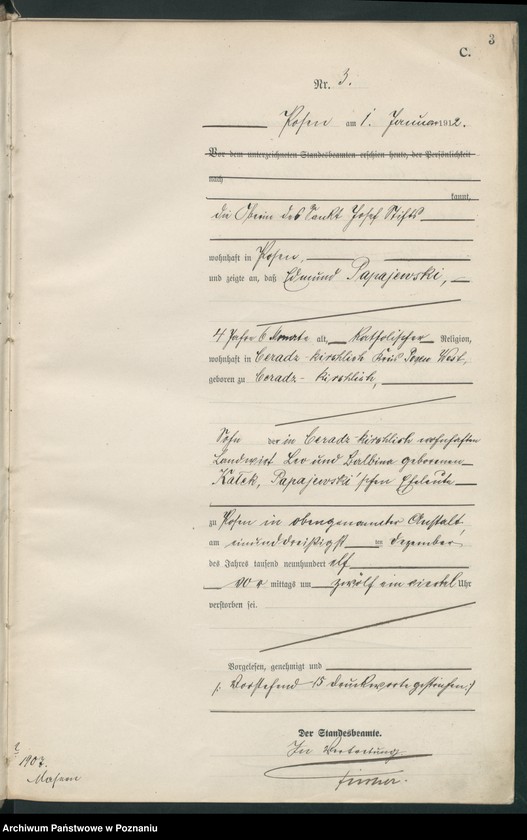 3
C.
Nr. 3.
Posen am 1. Januar 1912.
Vor dem unterzeichneten Standesbeamten erschien heute, der Persönlichkeit
nach
kannt,
die Oberin des Sankt Josef Stifts
wohnhaft in Posen,
und zeigte an, daß Edmund Papajewski,
4 Jahre 6 Monate alt, Katholischer Religion,
wohnhaft in Ceradz-kirchlich Kreis Posen West,
geboren zu Ceradz-kirchlich,
Sohn der in Ceradz-kirchlich wohnhaften
Landwirt Leo und Balbina geborenen
Kałek, Papajewski'schen Eheleute
zu Posen in obengenannter Anstalt,
am einunddreißigst en Dezember
des Jahres tausend neunhundert elf
vor mittags um zwölf ein viertel Uhr
verstorben sei.
Vorgelesen, genehmigt und
/: Vorstehend 15 Druckworte gestrichen :/
Der Standesbeamte.
In Vertretung
1907.
Archiwum Państwowe w Poznaniu